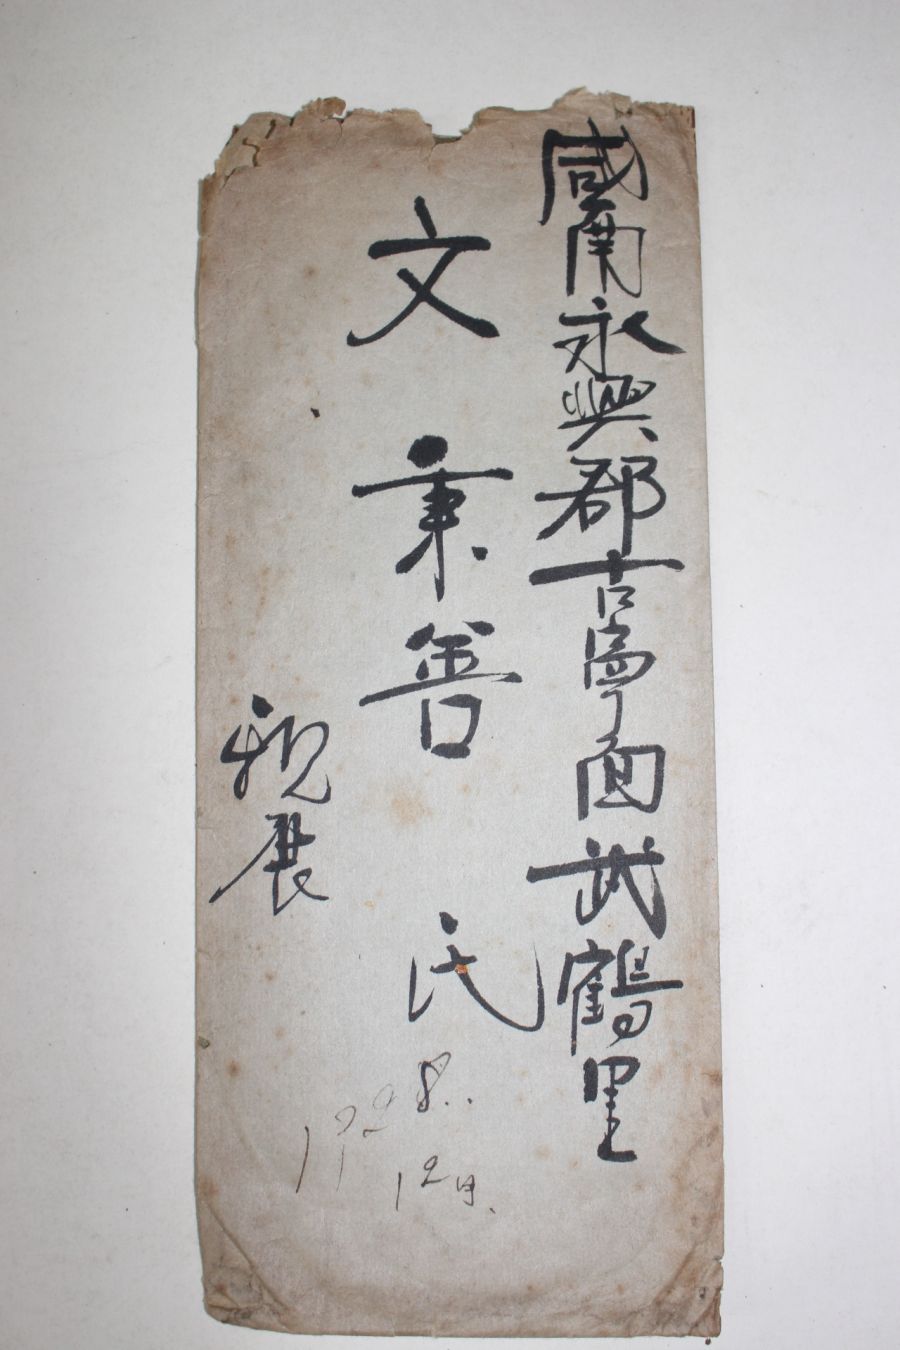 咸南永興郡古寧面武鶴里
文秉善 氏
親展
1928..
12月、